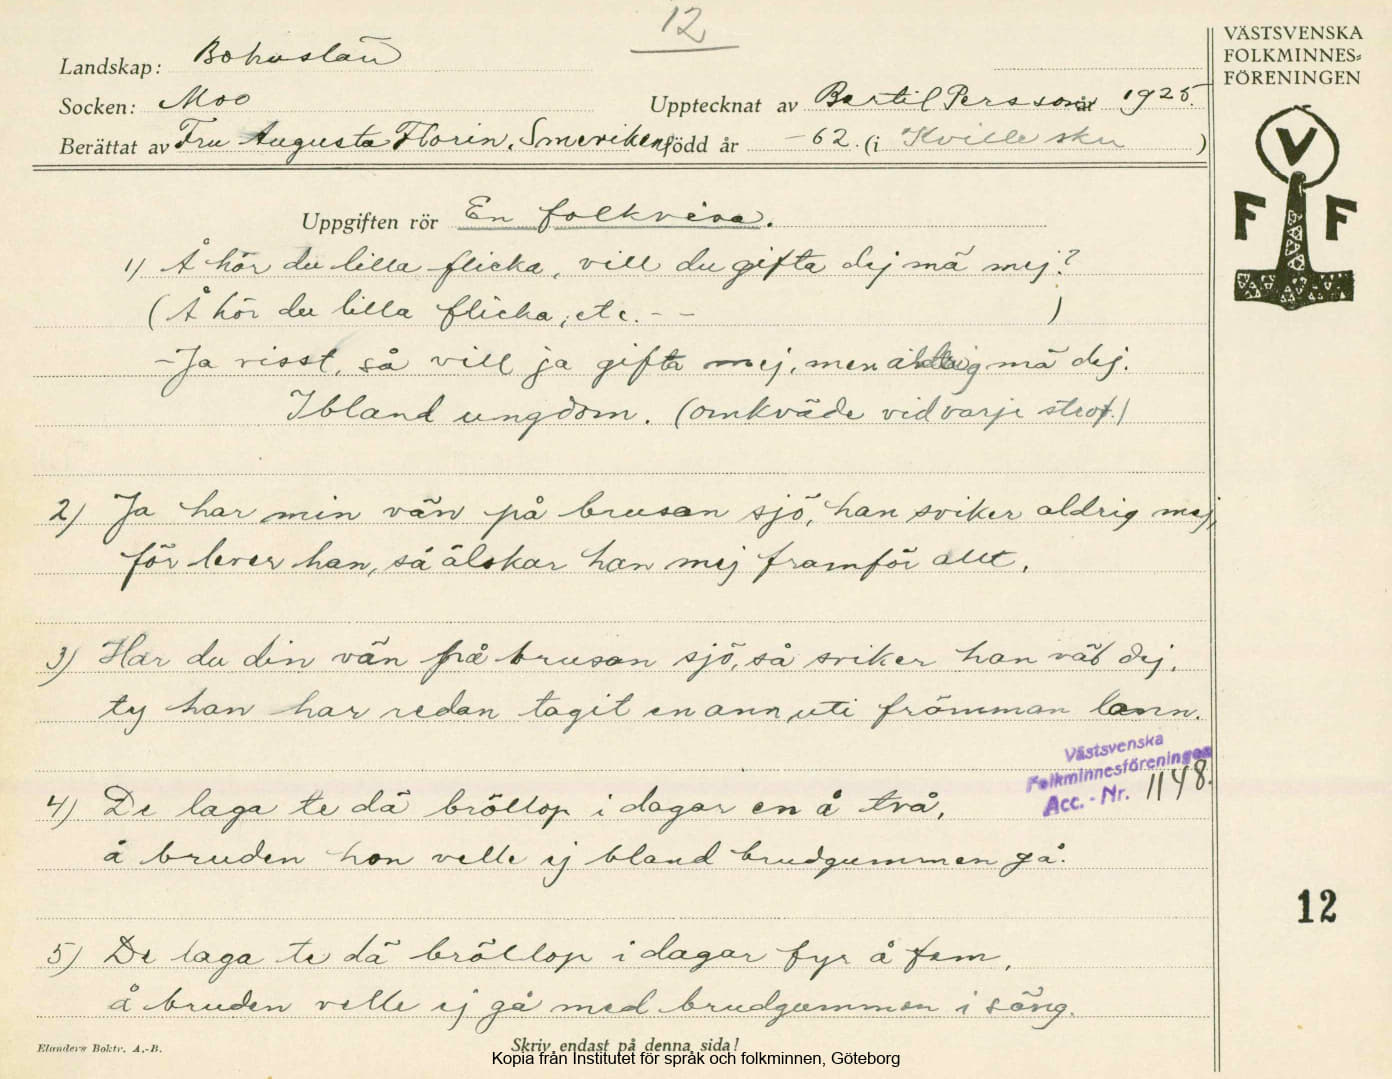 12
VÄSTSVENSKA
FOLKMINNES=
FÖRENINGEN
Landskap: Bohuslän
Socken: Moo
Upptecknat av Bertil Persson år 1925.
Berättat av Fru Augusta Florin, Smeviken, född år -62. (i Kville skn)
V
F F
Uppgiften rör En folkvisa.
1) Å hör du lilla flicka, vill du gifta dej mä mej?
(Å hör du lilla flicka, etc. - - )
- Ja visst, så vill ja gifta mej, men aldrig mä dej.
Ibland ungdom. (omkväde vid varje strof.)
2) Ja har min vän på brusan sjö, han sviker aldrig mej,
för lever han, så älskar han mej framför allt.
3) Har du din vän på brusan sjö, så sviker han väl dej,
ty han har redan tagit en ann uti främman lann.
Västsvenska
Folkminnesföreningen
Acc. - Nr. 1148.
4) De laga te dä bröllop i dagar en å två,
å bruden hon velle ej bland brudgummen gå.
12
5) De laga te dä bröllop i dagar fyr å fem,
å bruden velle ej gå med brudgummen i säng.
Elanders Boktr. A.-B.
Skriv endast på denna sida!
Kopia från Institutet för språk och folkminnen, Göteborg